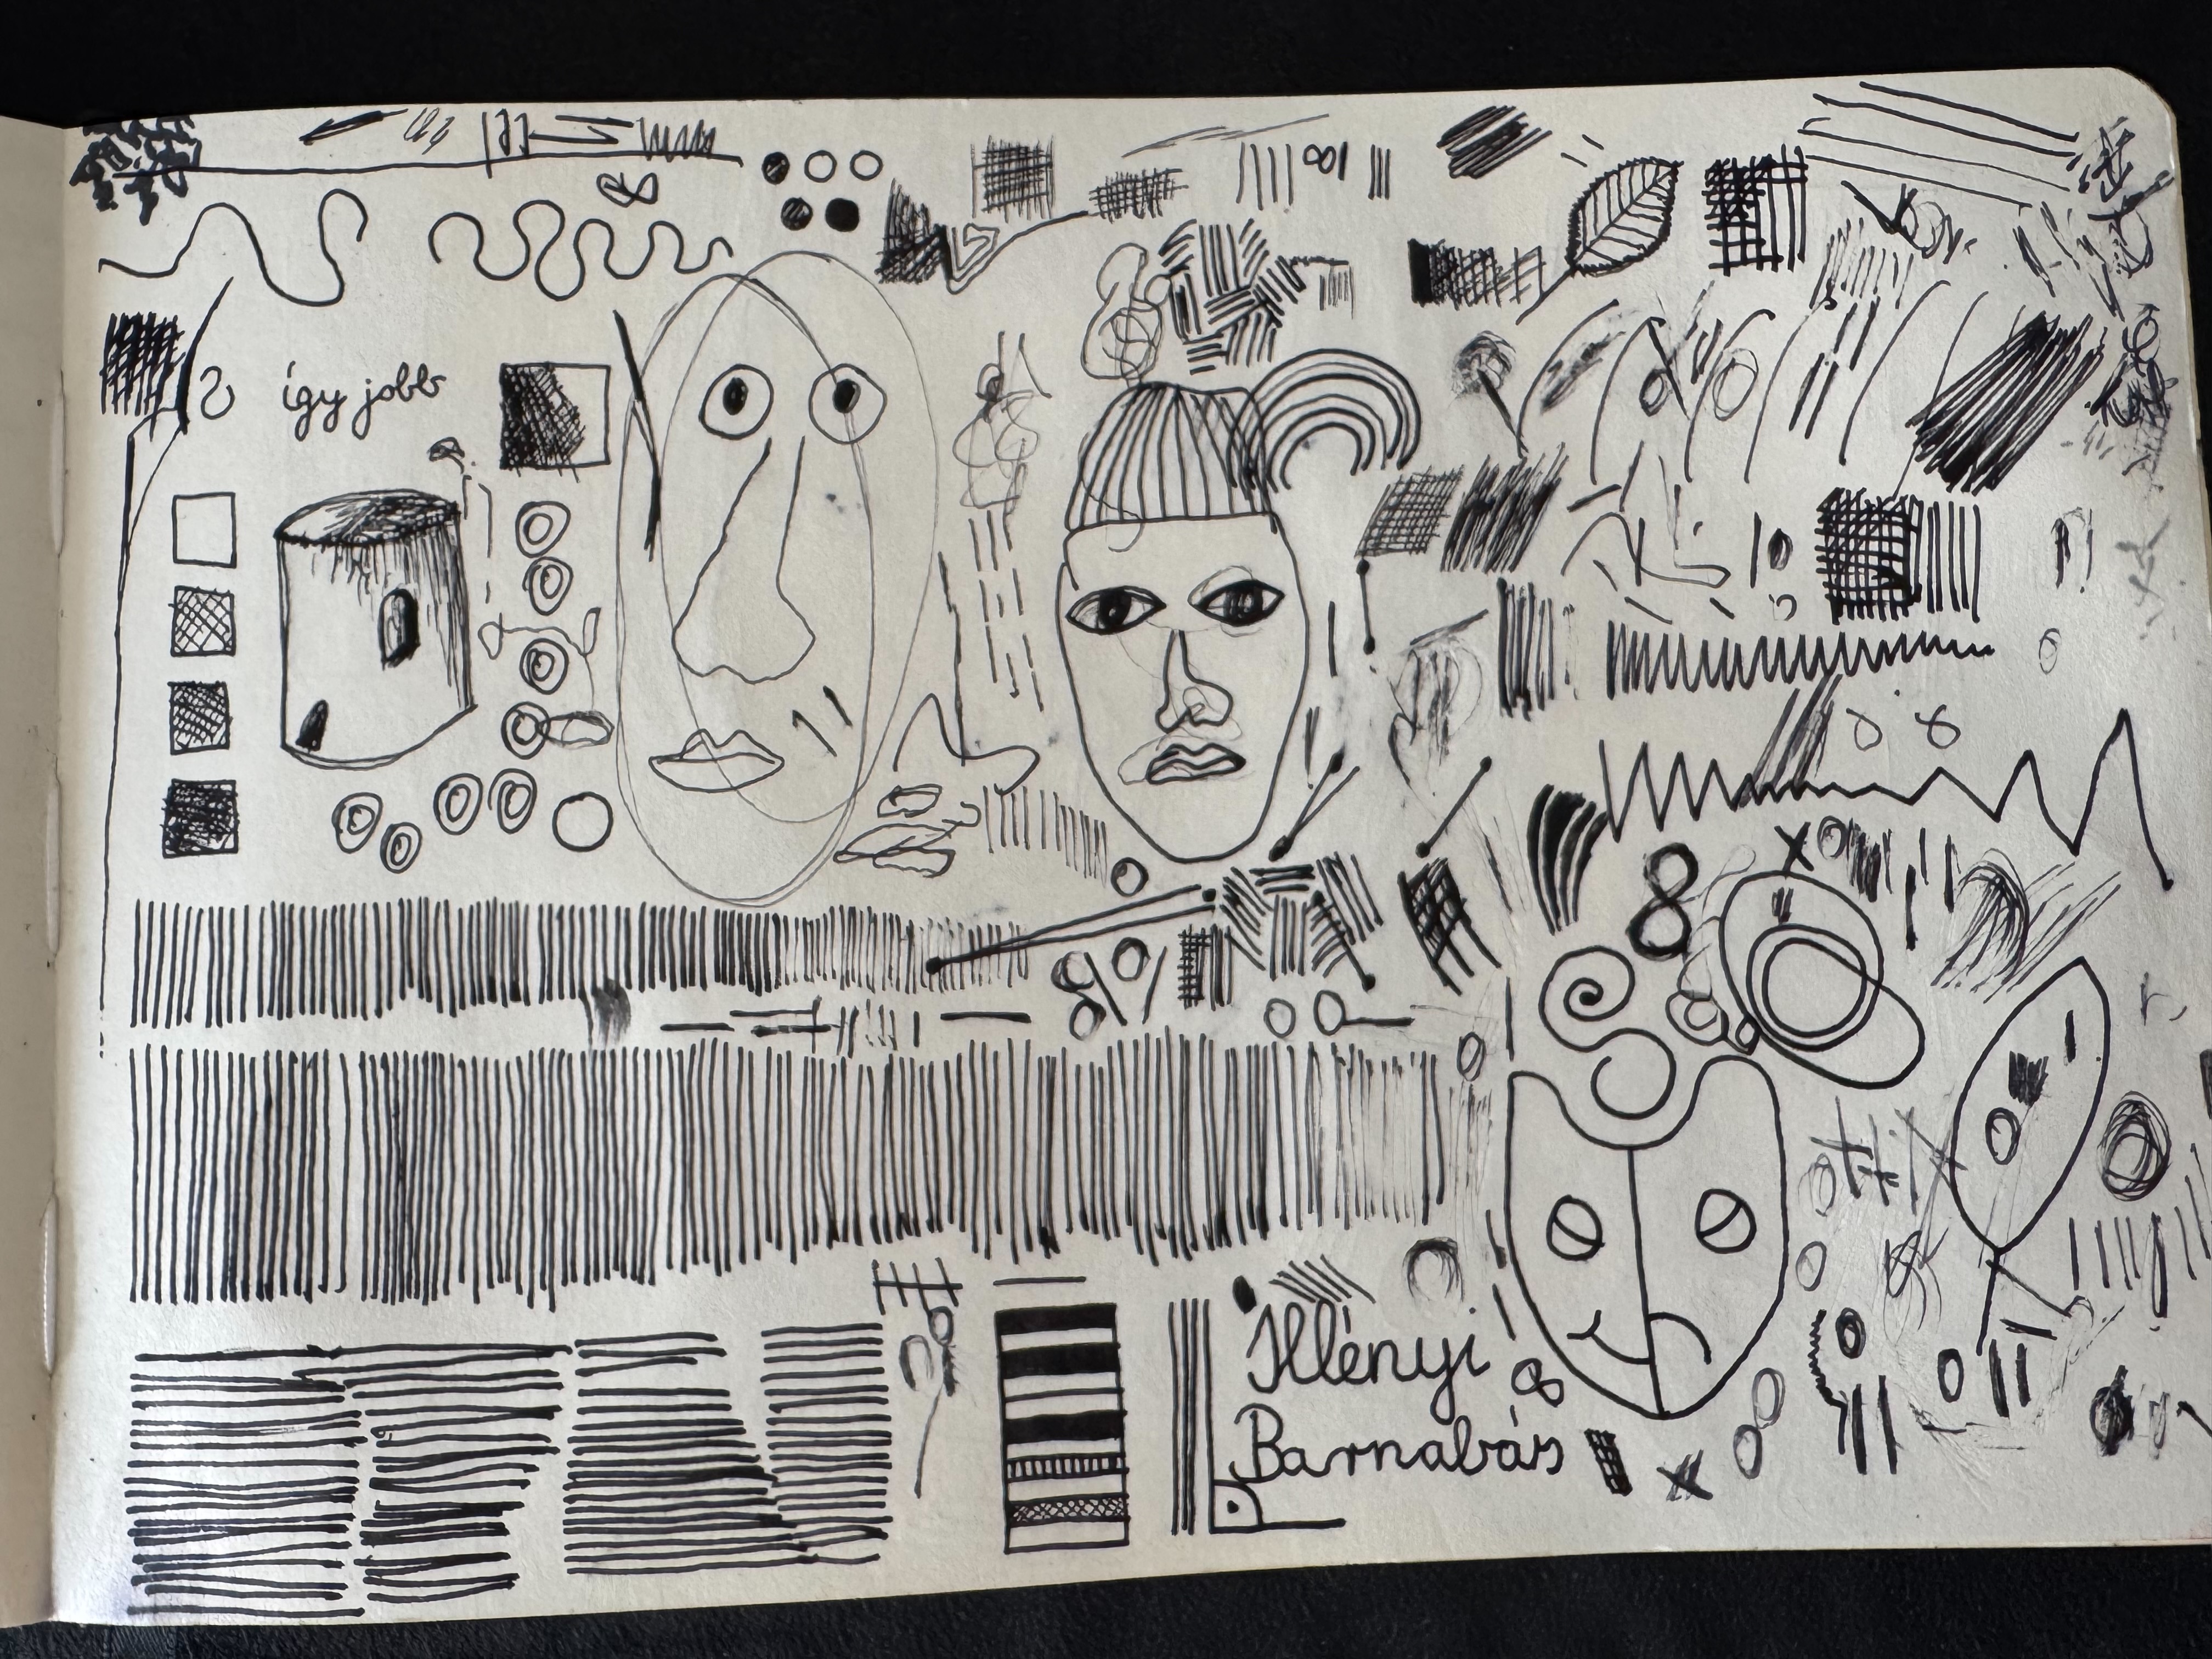 így jobb
Illényi
Barnabás